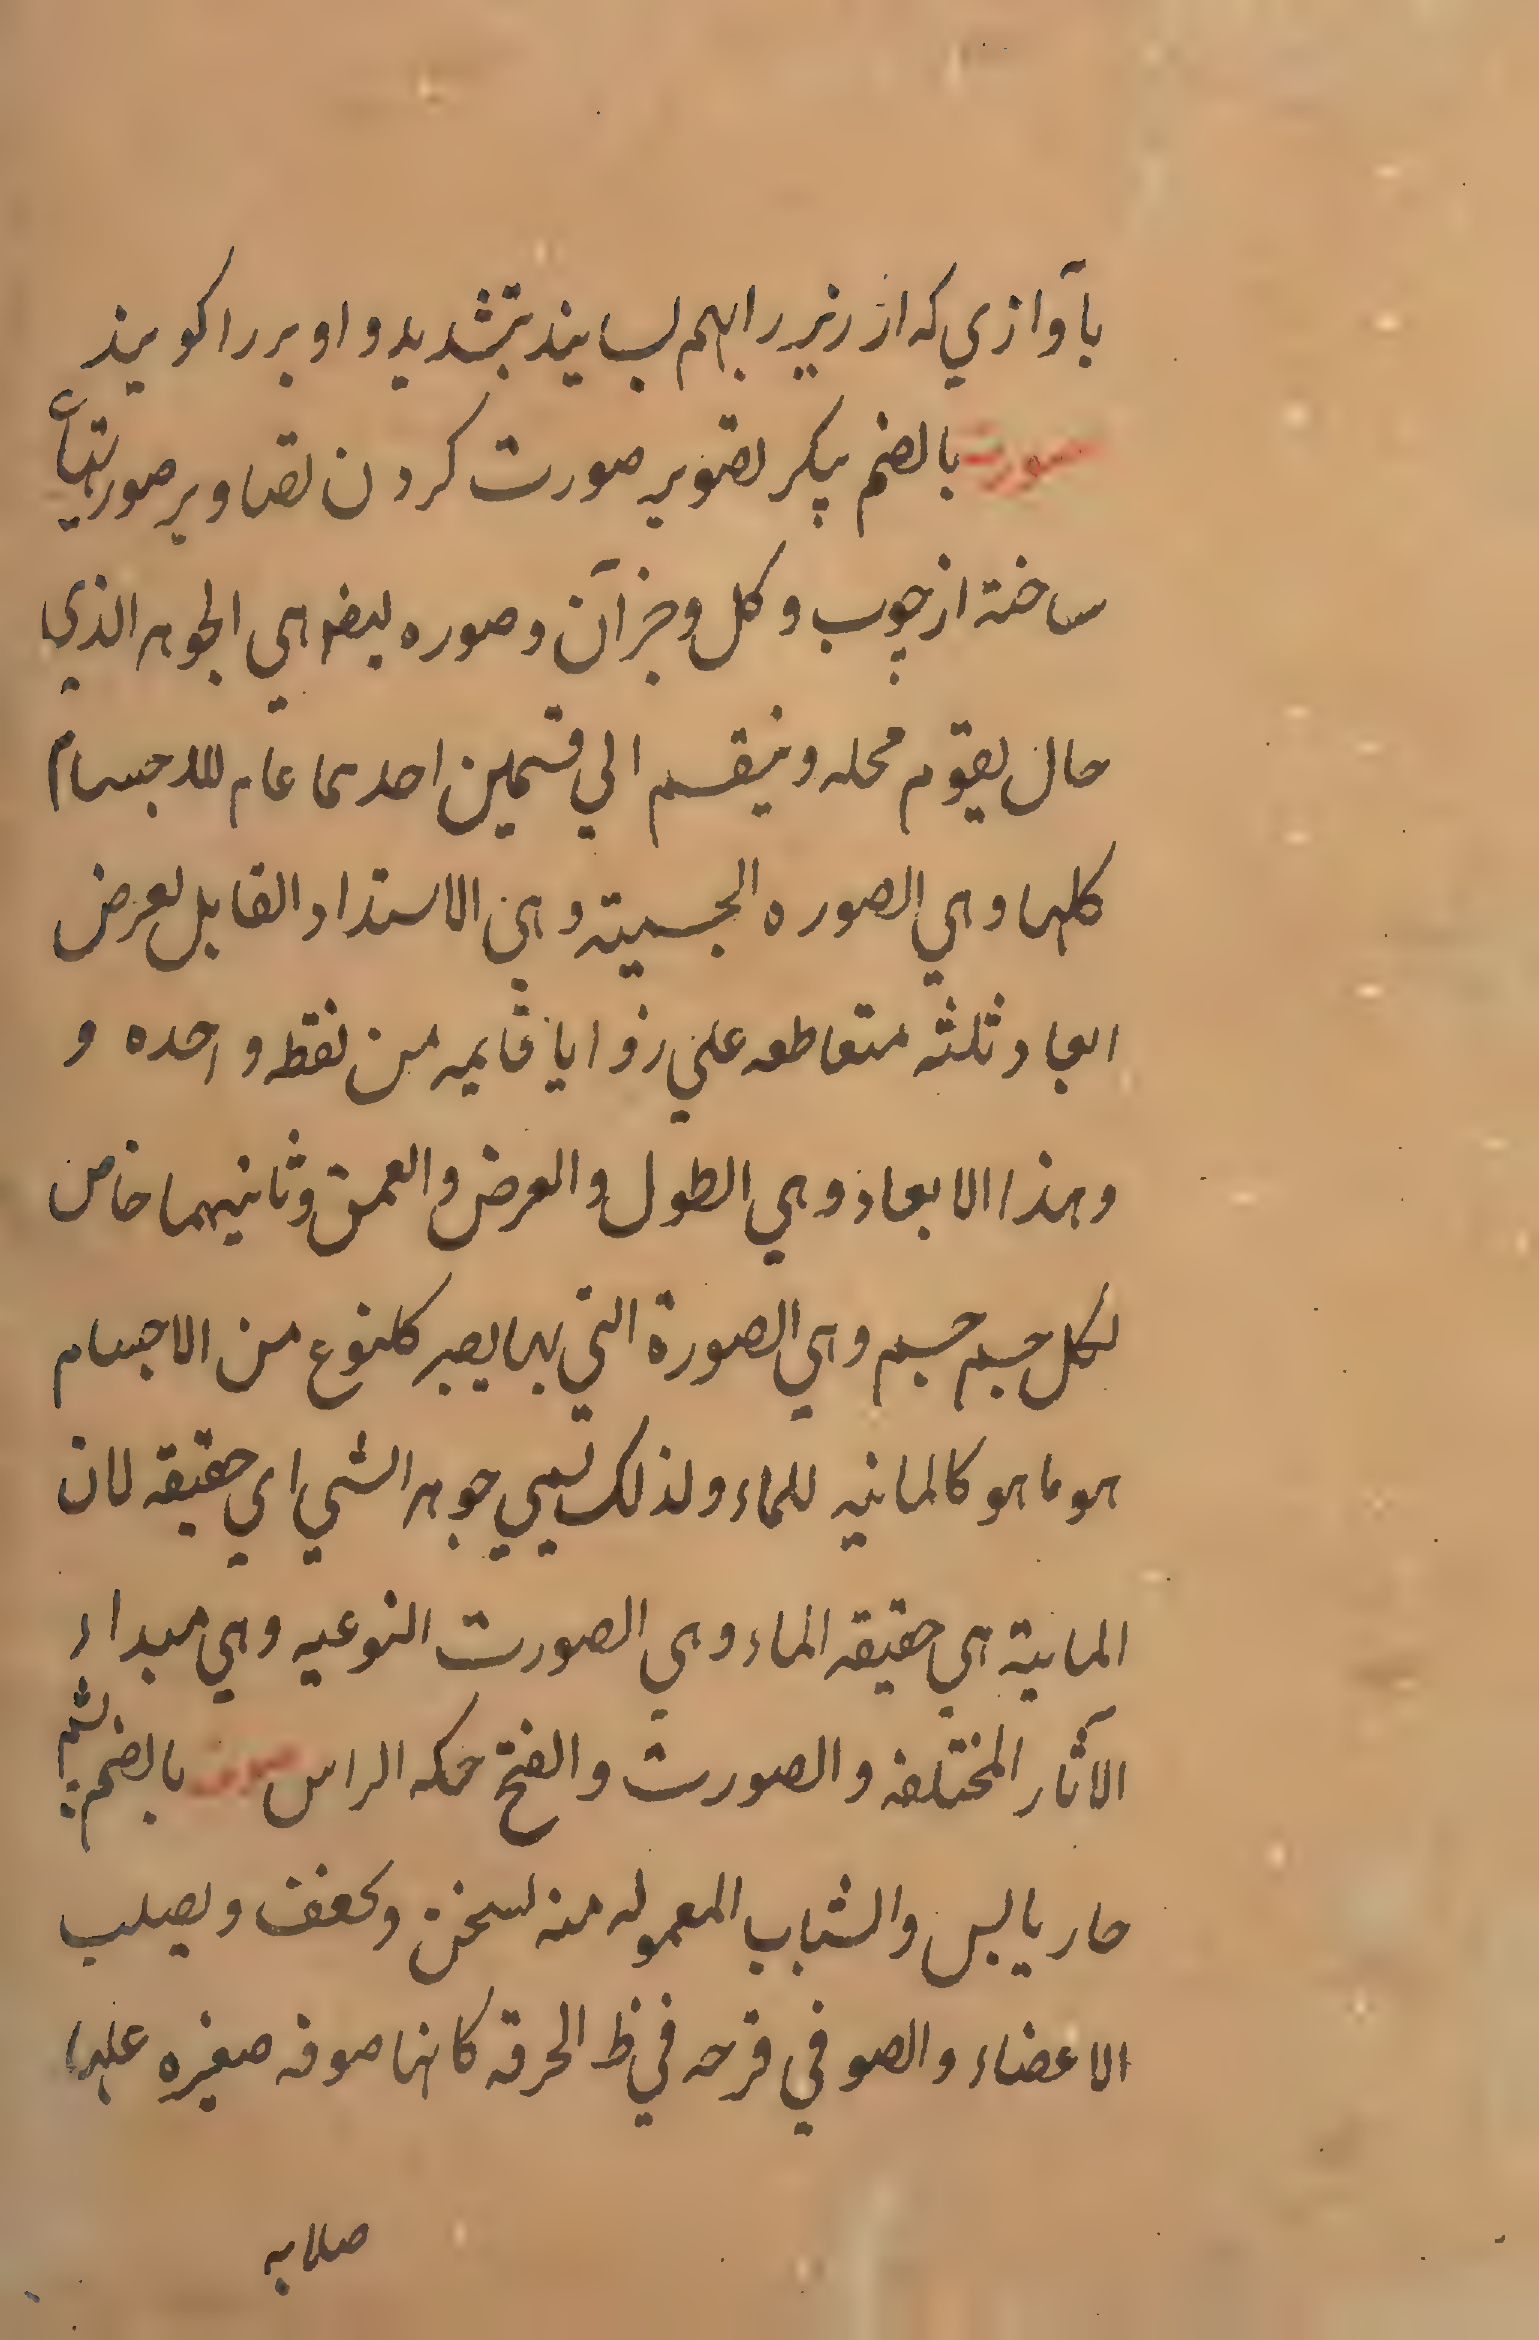 بآوازي كه از زير را بهم بسايند بتشديد واو بر را كويند
صورت بالضم پيكر تصوير صورت كردن تصاوير صورتهاء
ساخته از چوب و كل و جز آن وصوره ليفه هي الجوهر الذي
حال يقوم محله و ينقسم الي قسمين احدىما عام للاجسام
كلها وهي الصوره الجسميته وهي الاستداد القابل لعرض
ابعاد ثلثه متعاطعه علي زوايا قايمه من نقطه واحده و
وهذا الابعاد وهي الطول والعرض والعمق وثانيهما خاص
لكل جسم جسم وهي الصورة التي بها يصير كلنوع من الاجسام
هو ما هو كالمانيه للماء ولذلك تسمي جوهر الشي اي حقيقه لان
المابية هي حقيقه الماء وهي الصورت النوعيه وهي مبداء
الآثار المختلفه والصورت والفتح حكه الراس صوف بالضم پشم
حار يابس والثياب المعموله منه تسخن و تحفف و يصلب
الاعضاء والصوفي قرحه في ظ الحرقه كانها صوفه صغيره عليها
صلابه